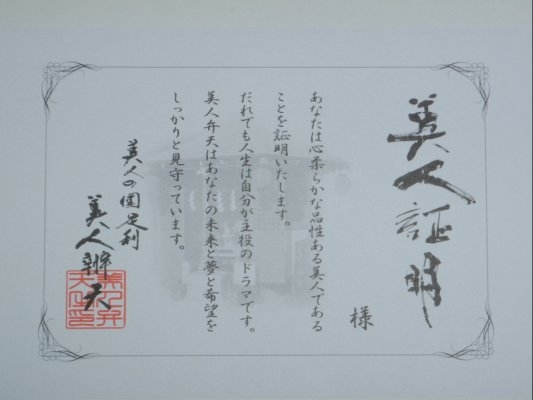 美人証明
様
あなたは心柔らかな品性ある美人である
ことを証明いたします。
だれでも人生は自分が主役のドラマです。
美人弁天はあなたの未来と夢と希望を
しっかりと見守っています。
美人の国足利
美人辨天
美人弁
天之印